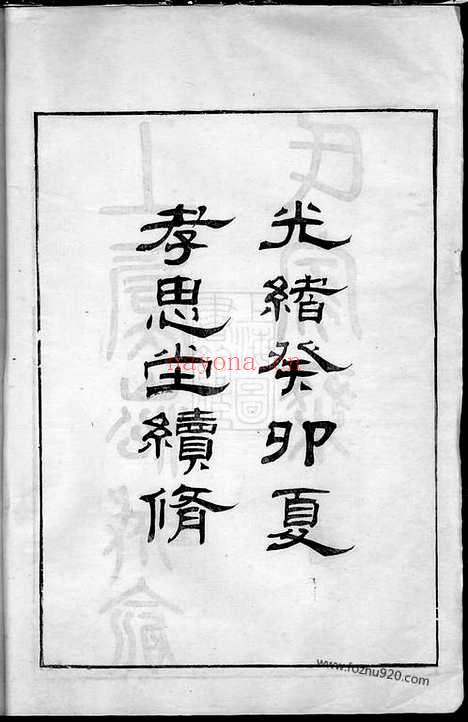 光緒癸卯夏
孝思堂續脩
nayona.cn
www.fozhu920.com